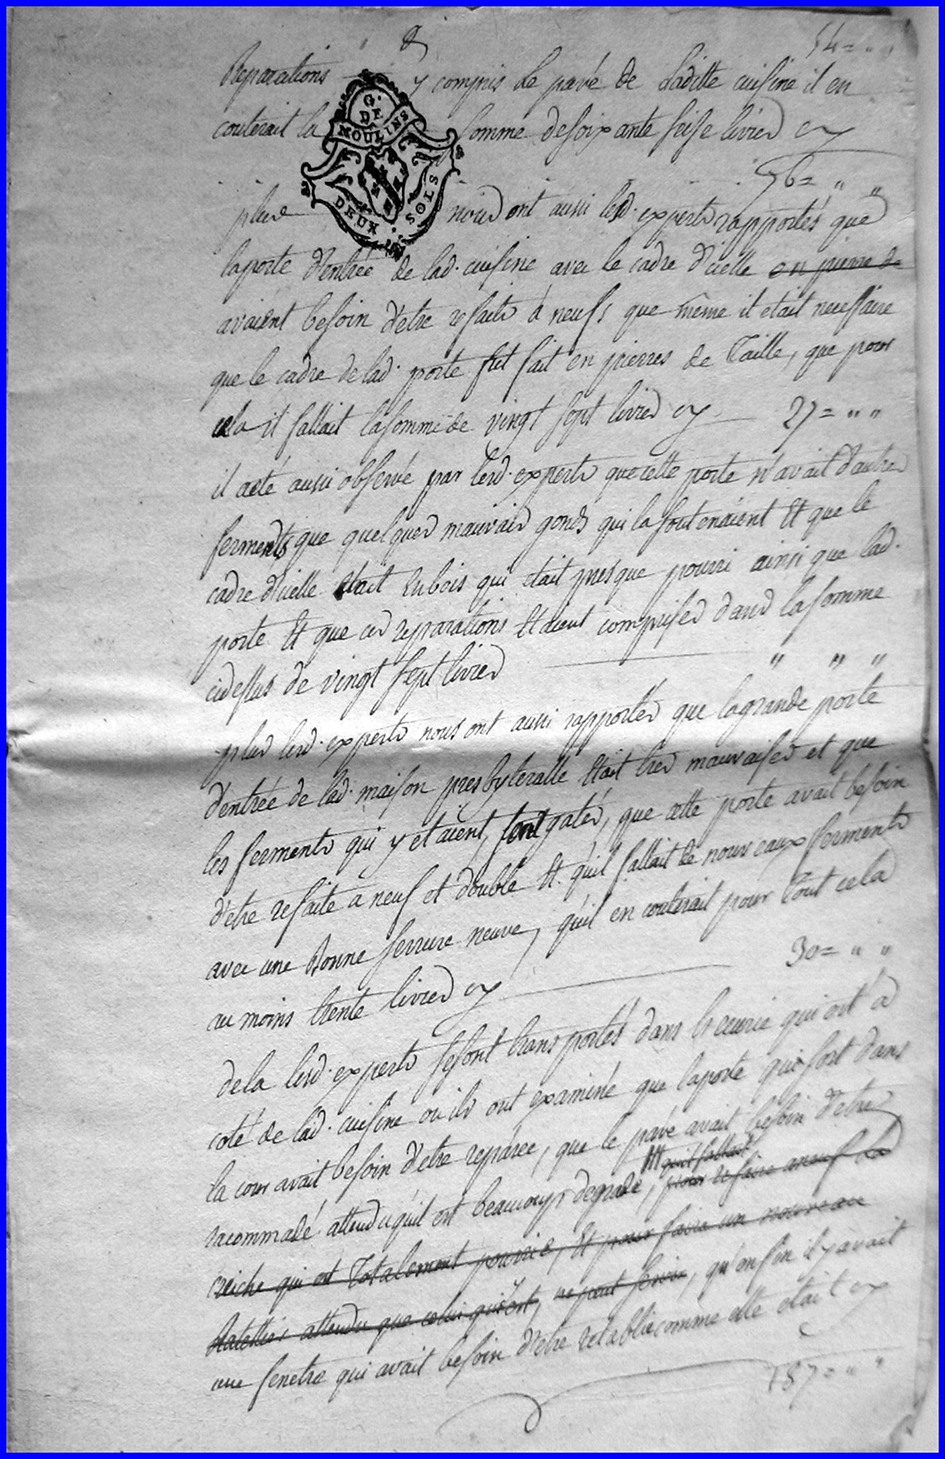 8
54 = " "
Reparations y compris le pavé de laditte cuisine il en
couterait la somme de soixante seise livres cy
G. DE MOULINS
DEUX SOLS
76 = " "
plus nous ont aussi lesd. experts rapportés que
la porte d'entrée de lad. cuisine avec le cadre d'icelle en pierre de
avaient besoin d'etre refaits à neufs que même il etait necessaire
que le cadre de lad. porte fut fait en pierres de Taille, que pour
cela il fallait la somme de vingt sept livres cy 27 = " "
il a eté aussi observé par lesd. experts que cette porte n'avait d'autres
ferments que quelques mauvais gonds qui la soutenaient Et que le
cadre d'icelle était en bois qui etait presque pourri ainsi que lad.
porte Et que ces reparations Etaient comprises dans la somme
cidessus de vingt sept livres " " "
plus lesd. experts nous ont aussi rapportés que la grande porte
d'entrée de lad. maison presbyteralle Etait tres mauvaises et que
les ferments qui y etaient, sont gatés, que cette porte avait besoin
d'etre refaite a neuf et double Et qu'il fallait de nouveaux ferments
avec une Bonne serrure neuve, qu'il en couterait pour Tout cela
au moins trente livres cy 30 = " "
de la lesd. experts se sont transportés dans l'ecurie qui est a
coté de lad. cuisine ou ils ont examiné que la porte qui sort dans
la cour avait besoin d'etre réparée, que le pavé avait besoin d'etre
qu'il fallait
racommadé attendu qu'il est beaucoup degradé, pour refaire a neuf la
creiche qui est Totalement pourrie, Et pour faire un nouveau
Ratelier attendu que celui qui y est, ne peut servir, qu'enfin il y avait
une fenetre qui avait besoin d'etre retablie comme elle etait cy
187 = " "